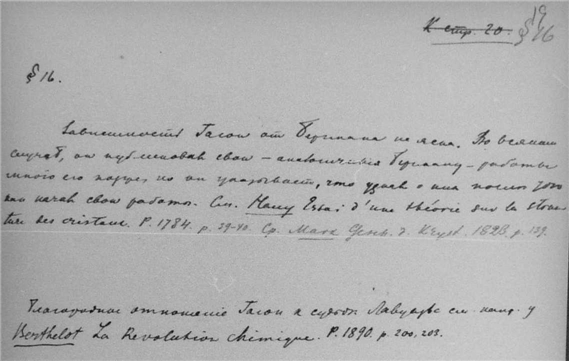 К стр. 20. § 16
§ 16.
Зависимость Гаюи от Бергмана не ясна. Во всяком
случае, он публиковал свои – аналогичные Бергману – работы
много его позднее но он указывает, что узнал о них после того
как начал свои работы. См. Haüy Essai d'une théorie sur la struc
ture des cristaux. P. 1784. p. 39-40. Ср. Marx Gesch. d. Kryst. 1825. p. 129.
Благородное отношение Гаюи к судьбе Лавуазье см. напр. у
Berthelot La Revolution chimique. P. 1890. p. 200, 203.